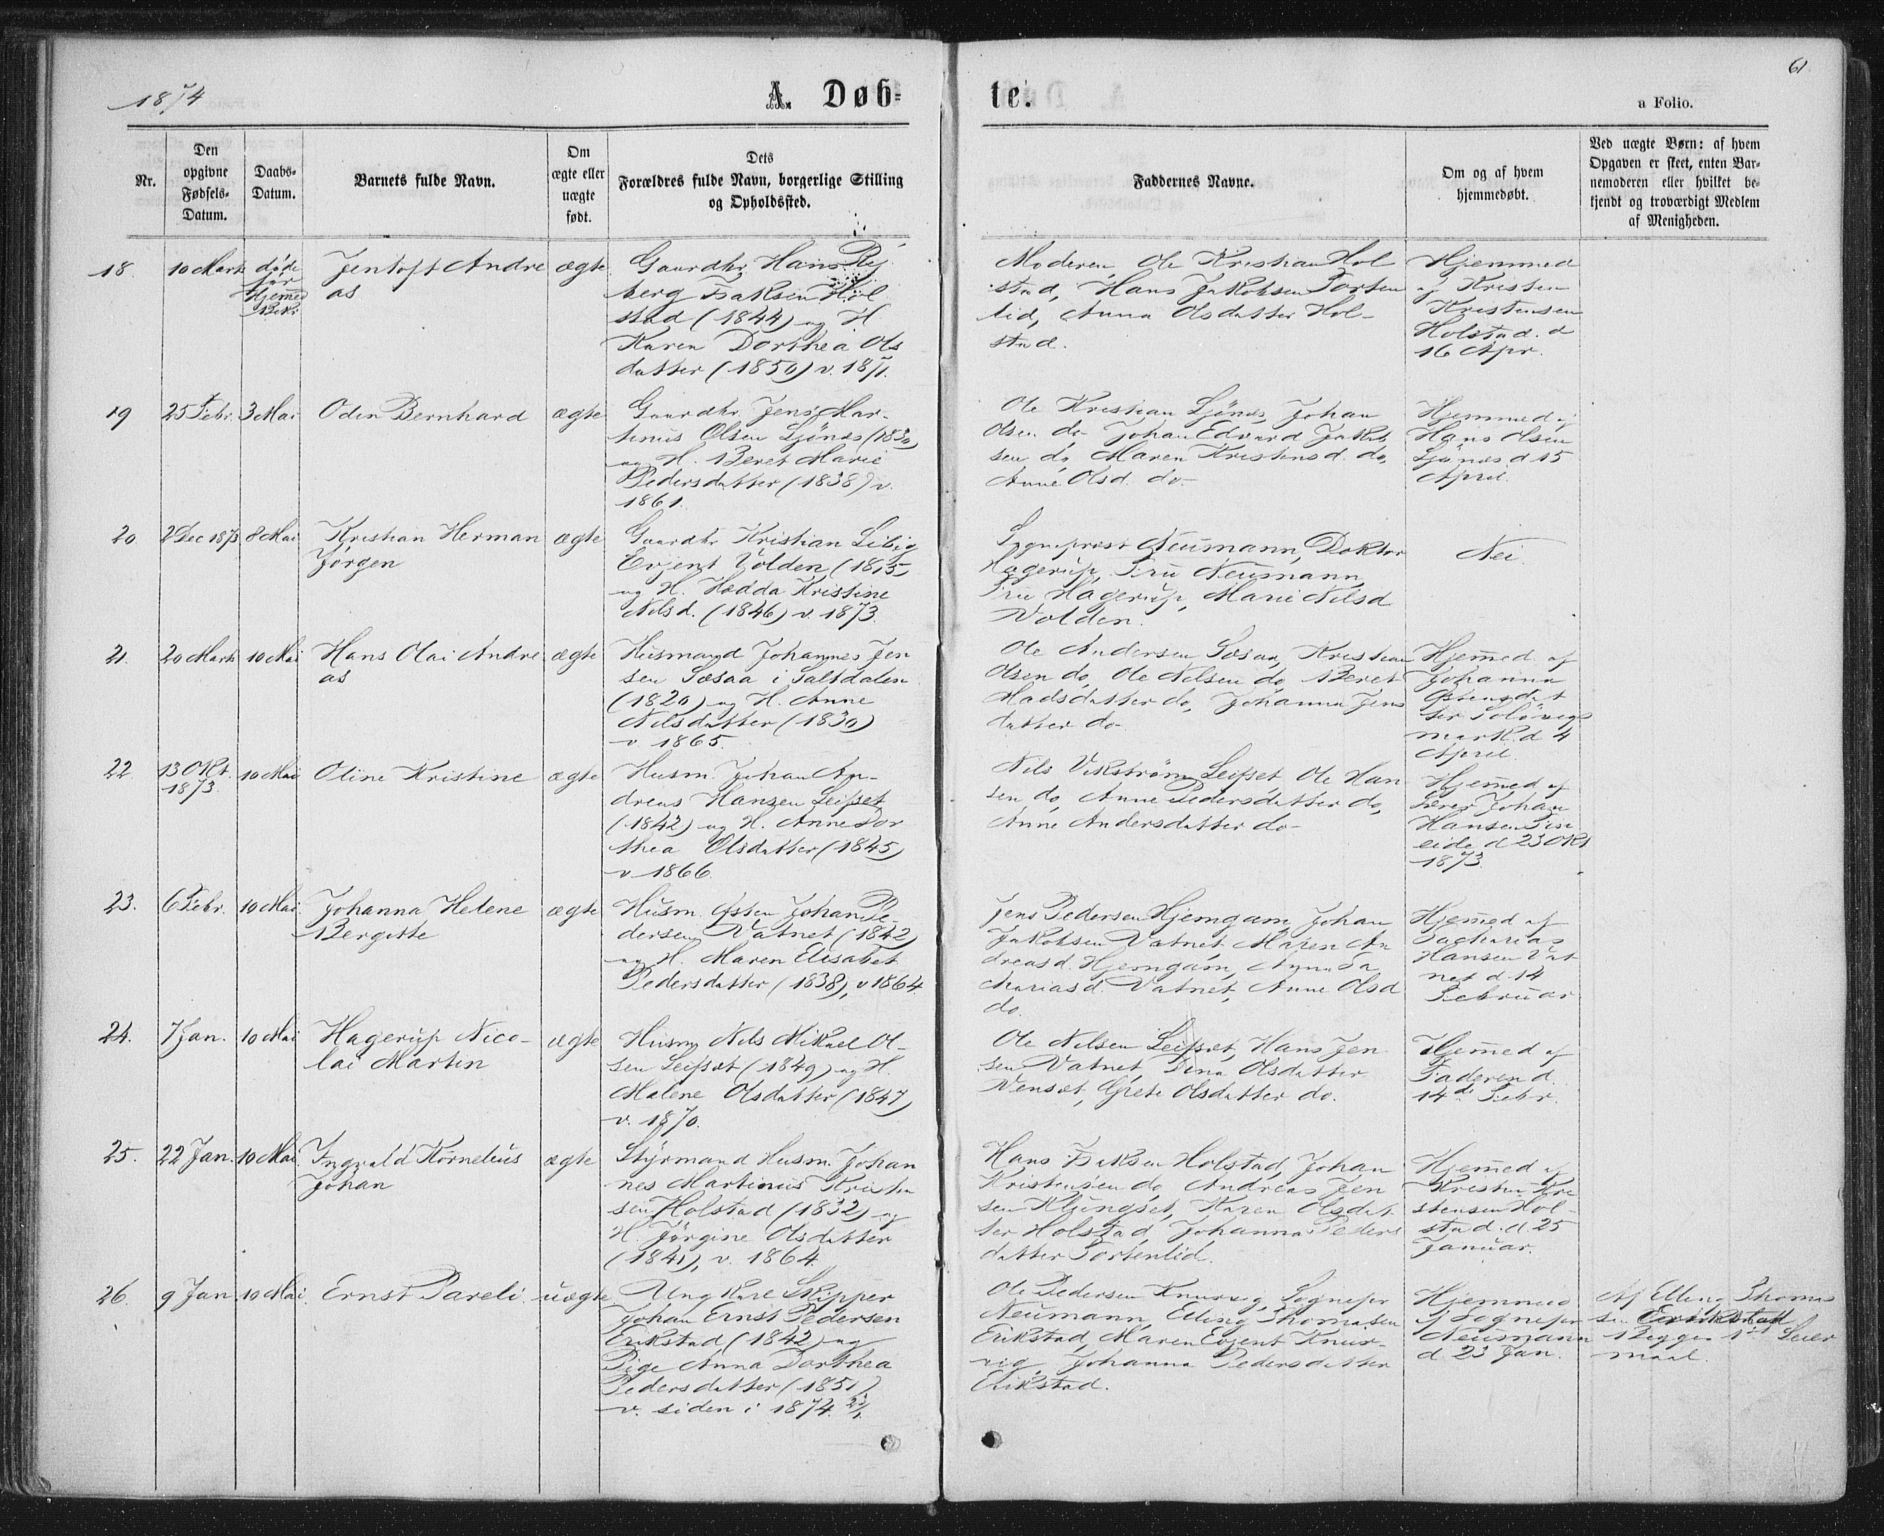 1874
A. Døb-
te.
61
a Folio.
Nr.
Den opgivne Fødsels-Datum.
Daabs-Datum.
Barnets fulde Navn.
Om ægte eller uægte født.
Dets Forældres fulde Navn, borgerlige Stilling og Opholdssted.
Faddernes Navne.
Om og af hvem hjemmedøbt.
Ved uægte Børn: af hvem
Opgaven er skeet, enten Bar-
nemoderen eller hvilket be-
kjendt og troværdigt Medlem
af Menigheden.
18. 10 Marts døde før Hjemmed Bek.
Jentoft Andre
as
ægte
Gaardbr. Hans
berg Isaksen Hol
stad (1844) og H.
Karen Dorthea Ols
datter (1850) v. 1871.
Moderen, Ole Kristian Hol
stad, Hans Jakobsen Torten
lid, Anna Olsdatter Hol-
stad.
Hjemmed
af Kristen
Kristensen
Holstad. d
16 Apr.
19 25 Febr. 3 Mai
Odin Bernhard
ægte
Gaardbr. Jens Mar-
tinus Olsen Ljønes (1830)
og H. Beret Marie
Pedersdatter (1838) v.
1861.
Ole Kristian Ljønes, Johan
Olsen do Johan Edvard Jakob
sen do, Maren Kristensd. do,
Anne Olsd. do-
Hjemmed af
Hans Olsen
Ljønes d 15
April.
20. 2 Dec 1873 8 Mai
Kristian Herman
Jørgen
ægte
Gaardbr Kristian Libig
Evjent Volden (1815)
og H. Hedda Kristine
Nilsd. (1846) v. 1873.
Sogneprest Neumann, Doktor
Hagerup, Fru Neumann,
Fru Hagerup, Marie Nilsd
Volden.
Nei.
21. 20 Marts 10 Mai
Hans Olai Andre
as
ægte
Husmand Johannes Jen
sen Sæsaa i Saltdalen
(1820) og H. Anne
Nilsdatter (1830)
v 1865.
Ole Andersen Sæsaa, Kristian
Olsen do, Ole Nilsen do, Beret
Madsdatter do, Johanna Jens
datter do
Hjemmed. af
Johanna
Ostensdat
ter Soløvigs
mark d 4
April.
22 13 Okt. 1873 10 Mai
Oline Kristine
ægte
Husm. Johan An-
dreas Hansen Leifset
(1842) og H. Anne Dor
thea Olsdatter (1845)
v 1866.
Nils Vikstrøm Leifset, Ole Han
sen do, Anne Pedersdatter do,
Anne Andersdatter do-
Hjemmed af
Lærer Johan
Hansen
eide d 23 Okt
1873.
23. 6 Febr. 10 Mai
Johanna Helene
Bergitte
ægte
Husm. Johan Pe-
dersen Vatnet (1842)
og H. Maren Elisabet
Pedersdatter (1838), v 1864.
Jens Pedersen Hjemgam, Johan
Jakobsen Vatnet, Maren An
dreasd. Hjemgam, Anna Za
chariasd. Vatnet, Anne Olsd
do.
Hjemmed af
Zacharias
Hansen Vat
net d. 14
Februar
24. 7 Jan. 10 Mai
Hagerup Nico-
lai Martin
ægte
Husm Nils Mikael Ol-
sen Leifset (1849) og H.
Malene Olsdatter (1847)
v. 1870.
Ole Nilsen Leifset, Hans Jen
sen Vatnet, Dina Olsdatter
Venset, Grete Olsdatter do.
Hjemmed af
Faderen d.
14de Febr.
25. 22 Jan. 10 Mai
Ingvald Kornelius
Johan
ægte
Styrmand Husm. Johan
nes Martinus Kristen
sen Holstad (1832) og
H. Jørgine Olsdatter
(1841), v. 1864.
Hans Isaksen Holstad, Johan
Kristensen do, Andreas Jen
sen Klungset, Karen Olsdat
ter Holstad, Johanna Peders
datter Tortenlid.
Hjemmed af
Kristen Kri
stensen Hol-
stad. d 25
Januar.
26. 9 Jan. 10 Mai
Ernst Pareli
uægte
Ung Karl Skipper
Johan Ernst Pedersen
Erikstad (1842) og
Pige Anna Dorthea
Pedersdatter (1851)
v. siden i 1874.
Ole Pedersen Knurvig, Sognepr
Neumann, Elling Thomasen
Erikstad, Maren Evjent Knur-
vig, Johanna Pedersdatter
Erikstad.
Hjemmed
af Sognepr
Neumann
d. 23 Jan.
Af Elling Thomas
sen Erikstad
Begges 1ste Leier
maal.